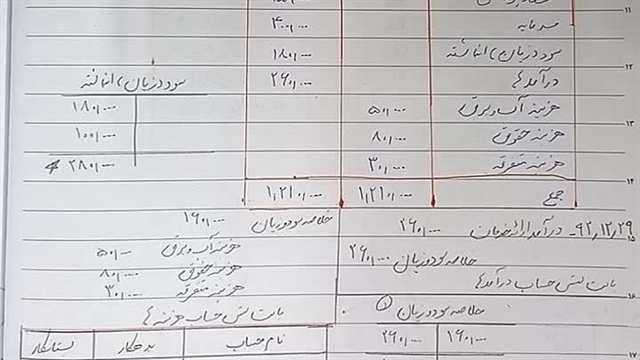 سرمایه ۴۰۰,۰۰۰
سود و زیان انباشته ۱۸۰,۰۰۰
درآمدها ۲۶۰,۰۰۰
هزینه آب و برق ۵۰,۰۰۰
هزینه حقوق ۸۰,۰۰۰
هزینه متفرقه ۳۰,۰۰۰
جمع ۱,۲۱۰,۰۰۰ ۱,۲۱۰,۰۰۰
سود و زیان انباشته
۱۸۰,۰۰۰
۱۰۰,۰۰۰
۲۸۰,۰۰۰
۹۲,۱۲,۲۹- درآمد ارائه خدمات ۲۶۰,۰۰۰
خلاصه سود و زیان ۲۶۰,۰۰۰
بابت بستن حساب درآمدها
خلاصه سود و زیان ۱۶۰,۰۰۰
هزینه آب و برق ۵۰,۰۰۰
هزینه حقوق ۸۰,۰۰۰
هزینه متفرقه ۳۰,۰۰۰
بابت بستن حساب هزینه ها
خلاصه سود و زیان
۱۶۰,۰۰۰ ۲۶۰,۰۰۰
نام حساب بدهکار بستانکار
۱۱
۱۲
۱۳
۱۴
۱۵
۱۶
۱۷